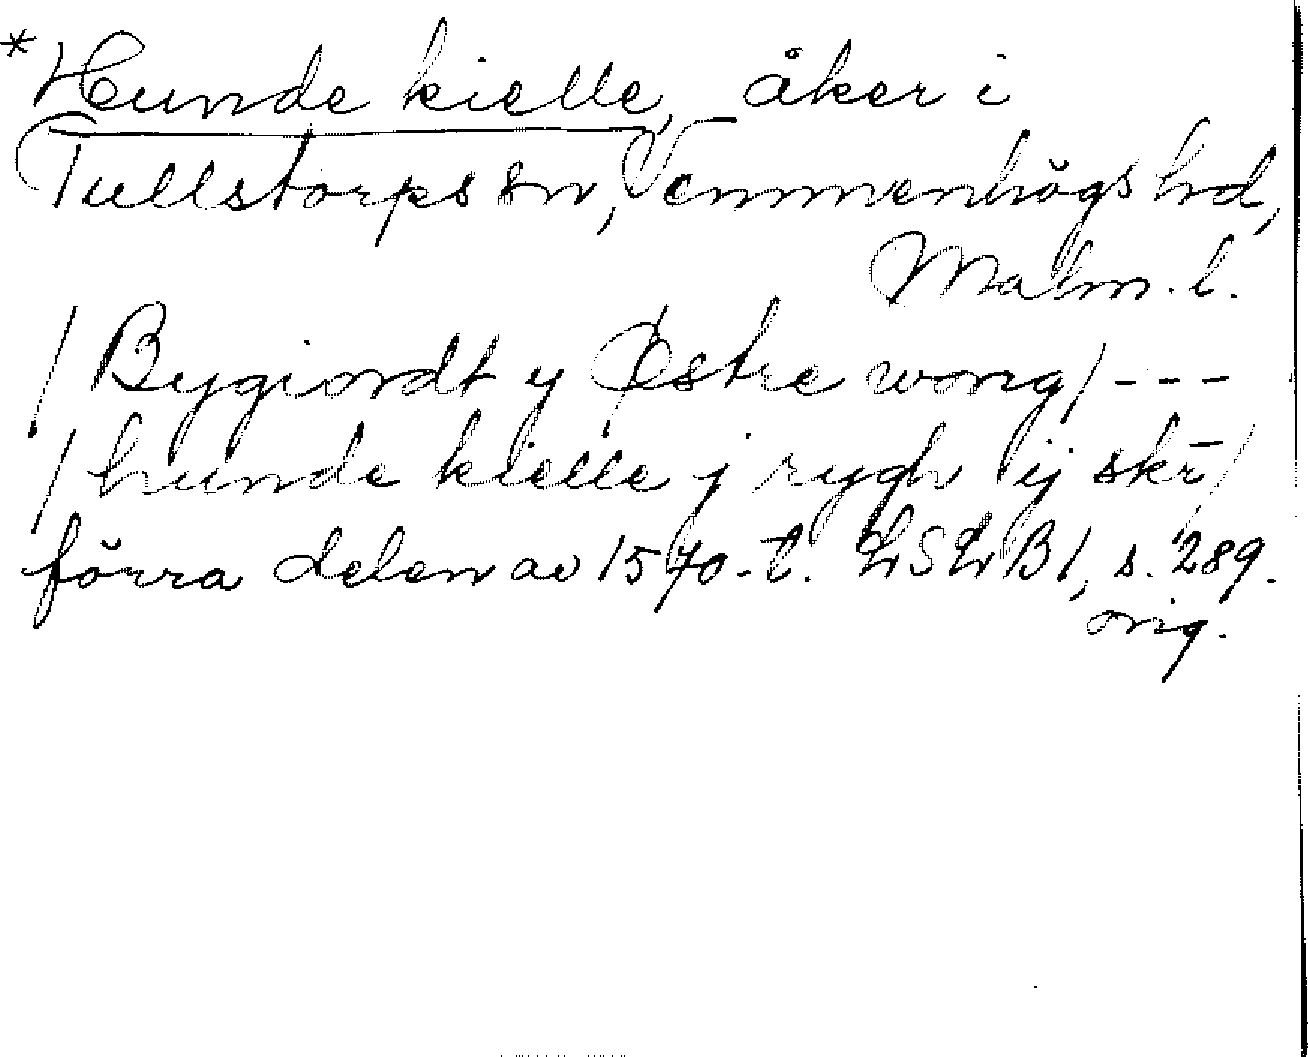 *Hunde kielle, åker i
Tullstorps sn, Vemmenhögs hd,
Malm. l.
/Bygiordt y Østre wong/ ---
/hunde kielle j rygh ij skr̄/
förra delen av 1570-t. LSLB1, s. 289.
orig.